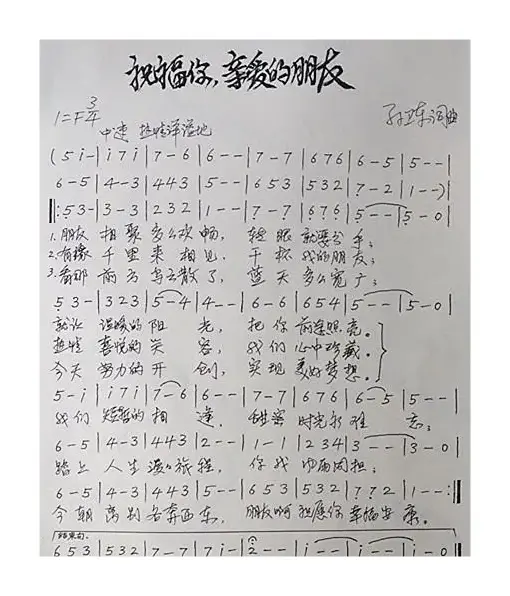 祝福你，亲爱的朋友
1=F 3/4
中速 热情洋溢地
孙卫东词曲
(5 i - | i 7 i | 7 - 6 | 6 - - | 7 - 7 | 6 7 6 | 6 - 5 | 5 - - |
6 - 5 | 4 - 3 | 4 4 3 | 5 - - | 6 5 3 | 5 3 2 | 7 - 2 | 1 - - )|
‖: 5 3 - | 3 - 3 | 2 3 2 | 1 - - | 7 - 7 | 6 7 6 | 5 - - | 5 - 0 |
1.朋友 相聚多么欢畅， 转眼就要分手；
2.有缘 千里来相见， 干杯我的朋友；
3.看那 前方乌云散了， 蓝天多么宽广；
5 3 - | 3 2 3 | 5 - 4 | 4 - - | 6 - 6 | 6 5 4 | 5 - - | 5 - 0 |
就让 温暖的阳 光， 把你前途照亮。
热情 喜悦的笑 容， 我们心中珍藏。
今天 努力的开 创， 实现美好梦想。
5 - i | i 7 i | 7 - 6 | 6 - - | 7 - 7 | 6 7 6 | 6 - 5 | 5 - - |
我们 短暂的相 逢， 甜蜜时光永难 忘；
6 - 5 | 4 - 3 | 4 4 3 | 2 - - | 1 - 1 | 2 3 4 | 3 - - | 3 - 0 |
踏上 人生漫漫旅程， 你我 同担；
6 - 5 | 4 - 3 | 4 4 3 | 5 - - | 6 5 3 | 5 3 2 | 7 7 2 | 1 - - :‖
今朝 离别各奔西东， 朋友啊祝愿你幸福安 康。
结束句
6 5 3 | 5 3 2 | 7 - 7 | 7 i - | 2 - - | i - - | i - - | i - 0